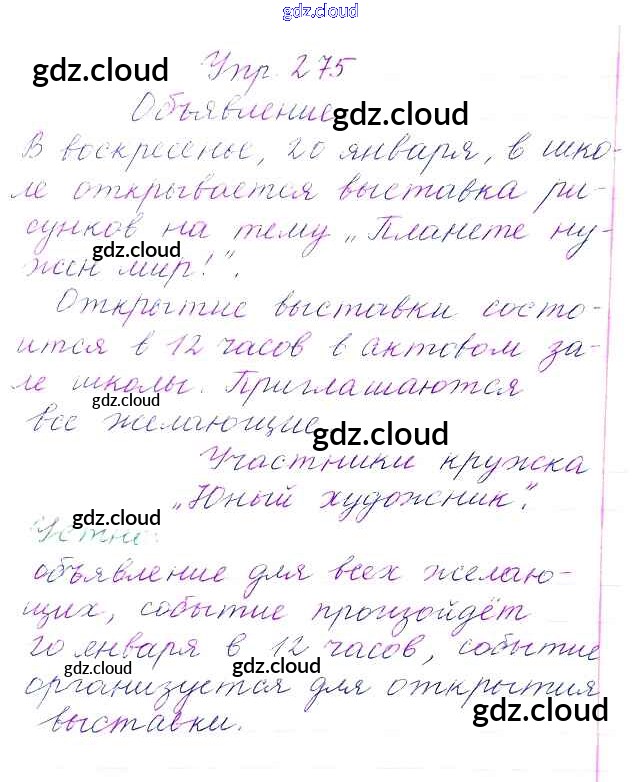 gdz.cloud
Упр. 275
gdz.cloud
Объявление
gdz.cloud
В воскресенье, 20 января, в шко-
ле открывается выставка ри-
сунков на тему „Планете ну-
gdz.cloud
жен мир!".
Открытие выставки состо-
ится в 12 часов в актовом за-
ле школы. Приглашаются
gdz.cloud
все желающие
gdz.cloud
Участники кружка
„Юный художник".
gdz.cloud
Устно:
объявление для всех желаю-
щих, событие произойдёт
20 января в 12 часов, событие
gdz.cloud
gdz.cloud
организуется для открытия
gdz.cloud
выставки.